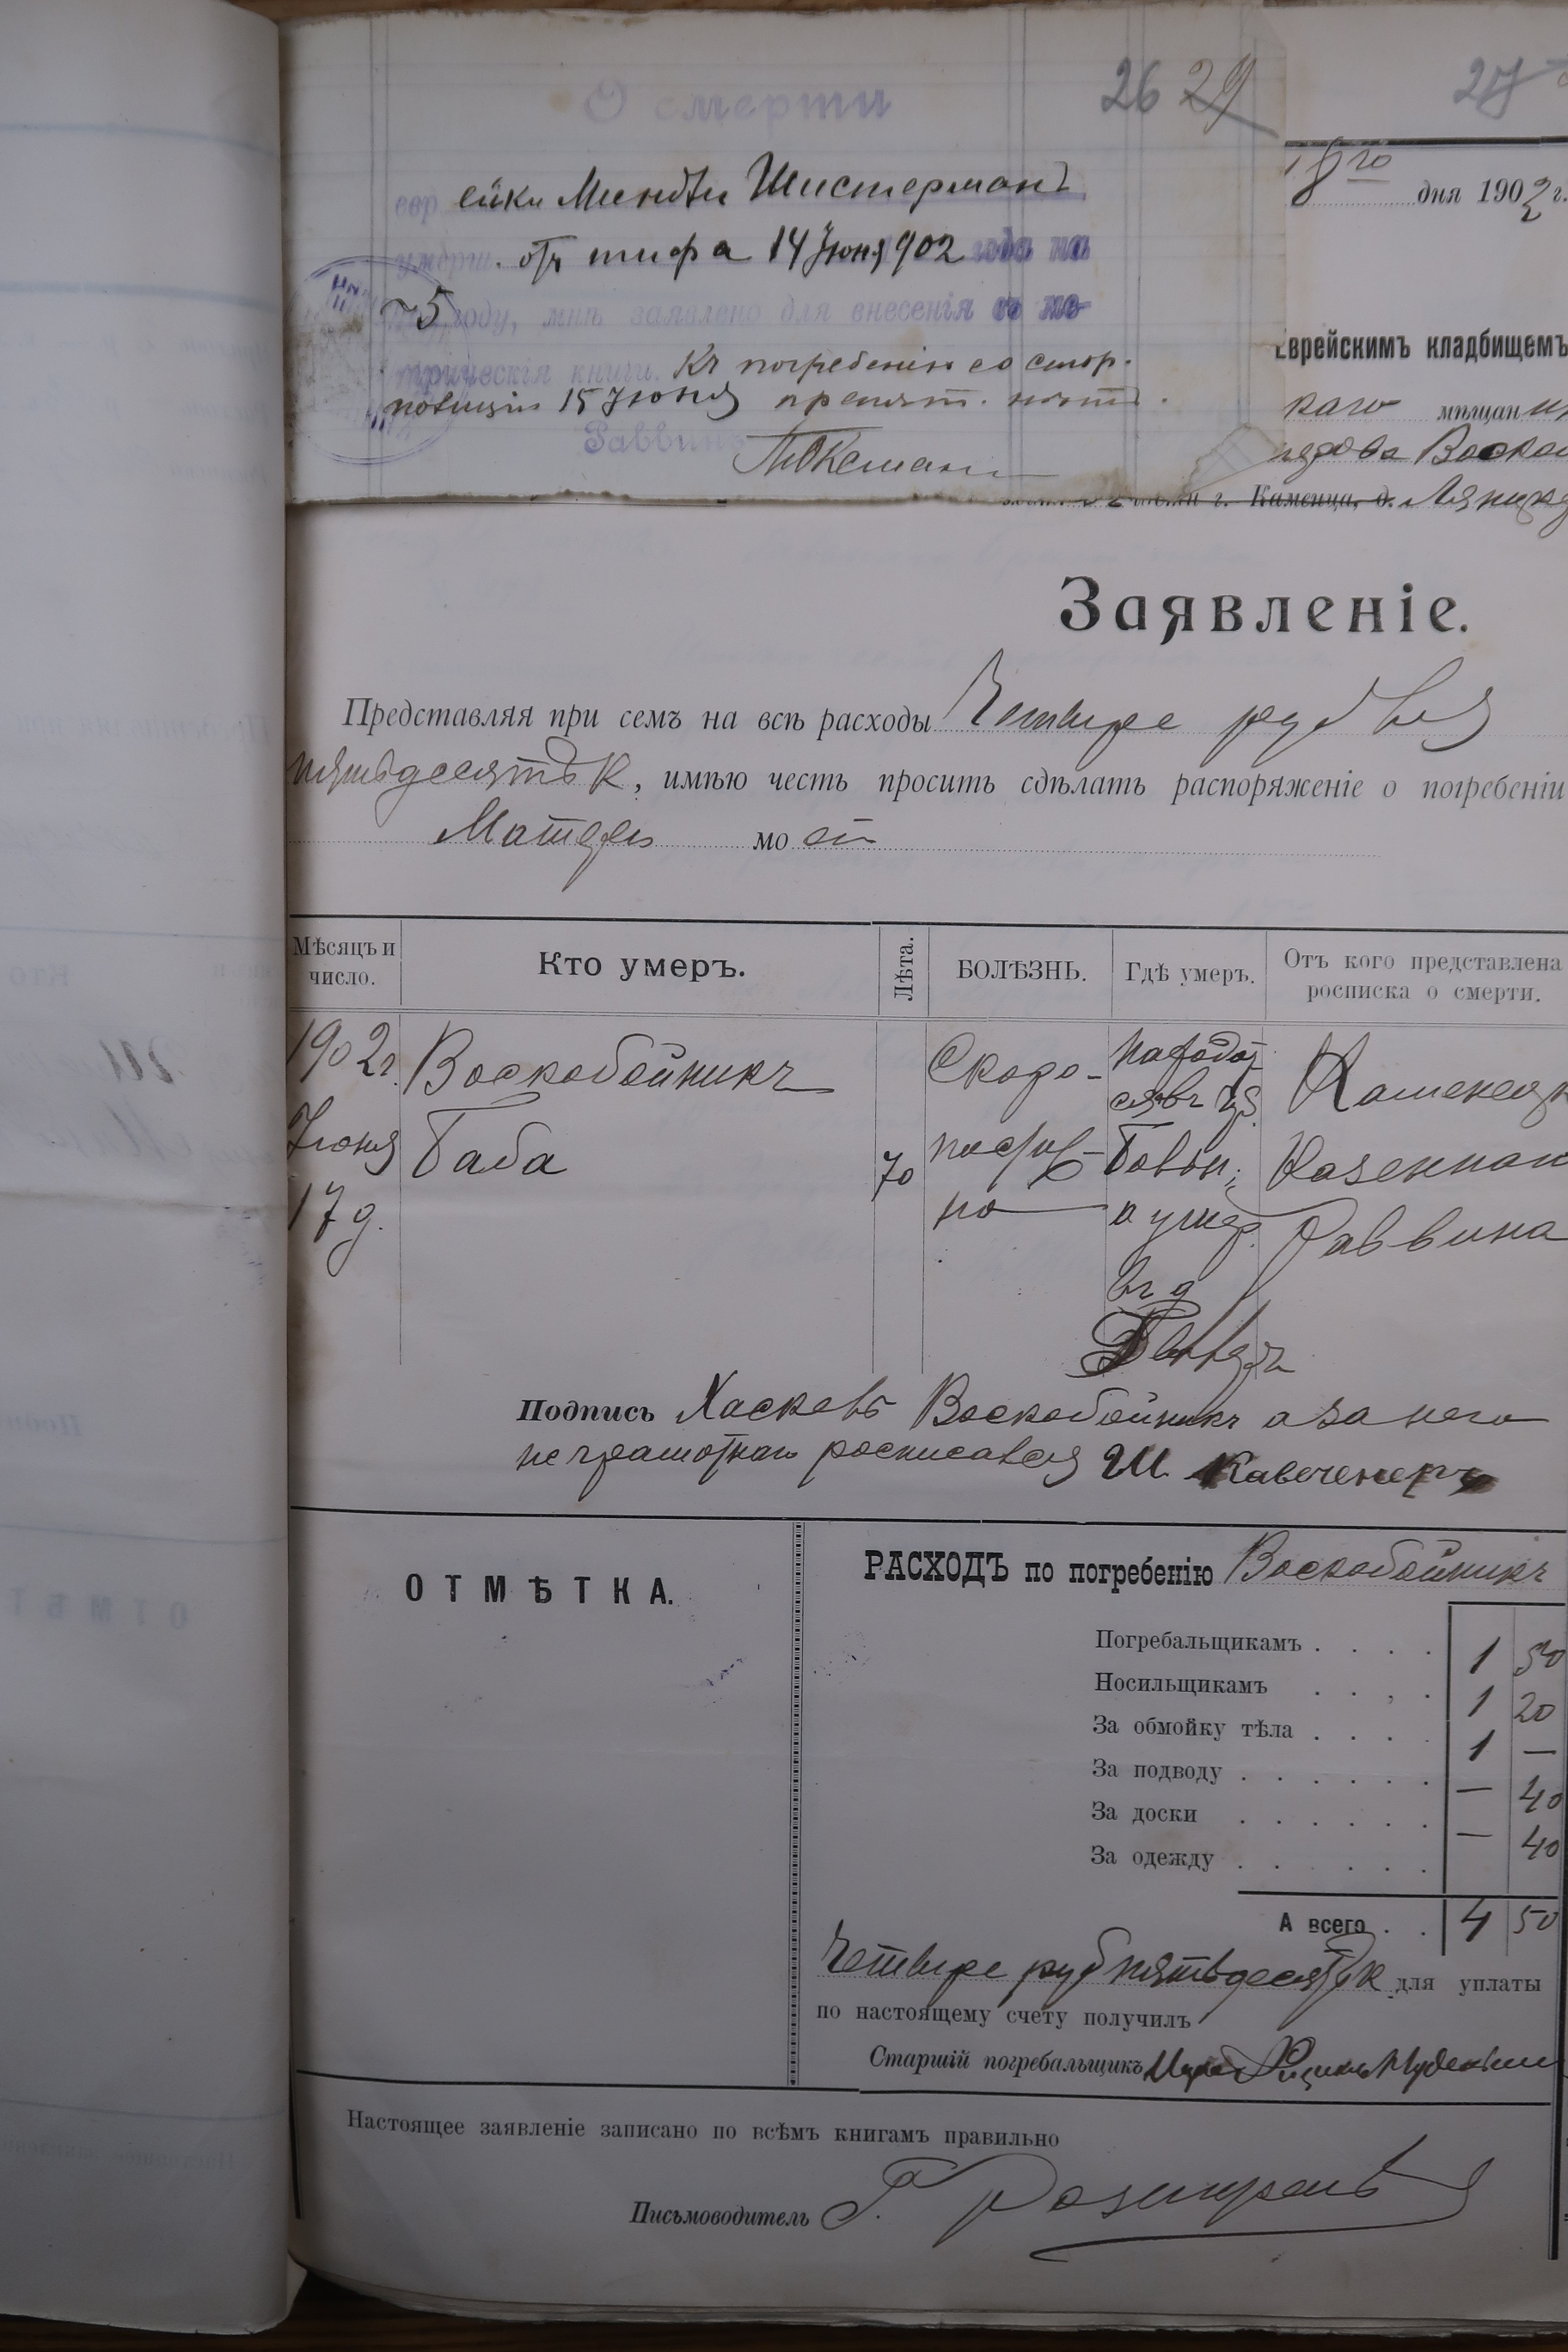 О смерти
26 29
27
евр ейки Миндли Шистерманъ
умерш. отъ тифа 14 Іюня 902 года на
75 году, мнѣ заявлено для внесенія въ ме-
трическія книги. Къ погребенію со стор.
полиціи 15 Іюня препят. нѣтъ.
Раввинъ
18го дня 1902 г.
Еврейскимъ кладбищемъ
каго мѣщан
г. Каменца, д.
Заявленіе.
Представляя при семъ на всѣ расходы Четыре рубля
пятьдесятъ к, имѣю честь просить сдѣлать распоряженіе о погребеніи
Матери моей
Мѣсяцъ и число.
Кто умеръ.
Лѣта.
БОЛѢЗНЬ.
Гдѣ умеръ.
Отъ кого представлена росписка о смерти.
1902 г.
Іюня
17 д.
Воскобойникъ
Баба
70
Скоро-
постиж-
но
а умер.
въ д
Каменецк
Казеннаго
Раввина
Подпись Хаскель Воскобойникъ а за него
неграмотнаго росписался Ш.
ОТМѢТКА.
РАСХОДЪ по погребенію Воскобойникъ
Погребальщикамъ . . . . 1 50
Носильщикамъ . . . . 1 20
За обмойку тѣла . . . . 1 —
За подводу . . . . . . — 40
За доски . . . . . . — 40
За одежду . . . . . .
А всего . . 4 50
Четыре руб пятьдесятъ к для уплаты
по настоящему счету получилъ
Старшій погребальщикъ
Настоящее заявленіе записано по всѣмъ книгамъ правильно
Письмоводитель Г.